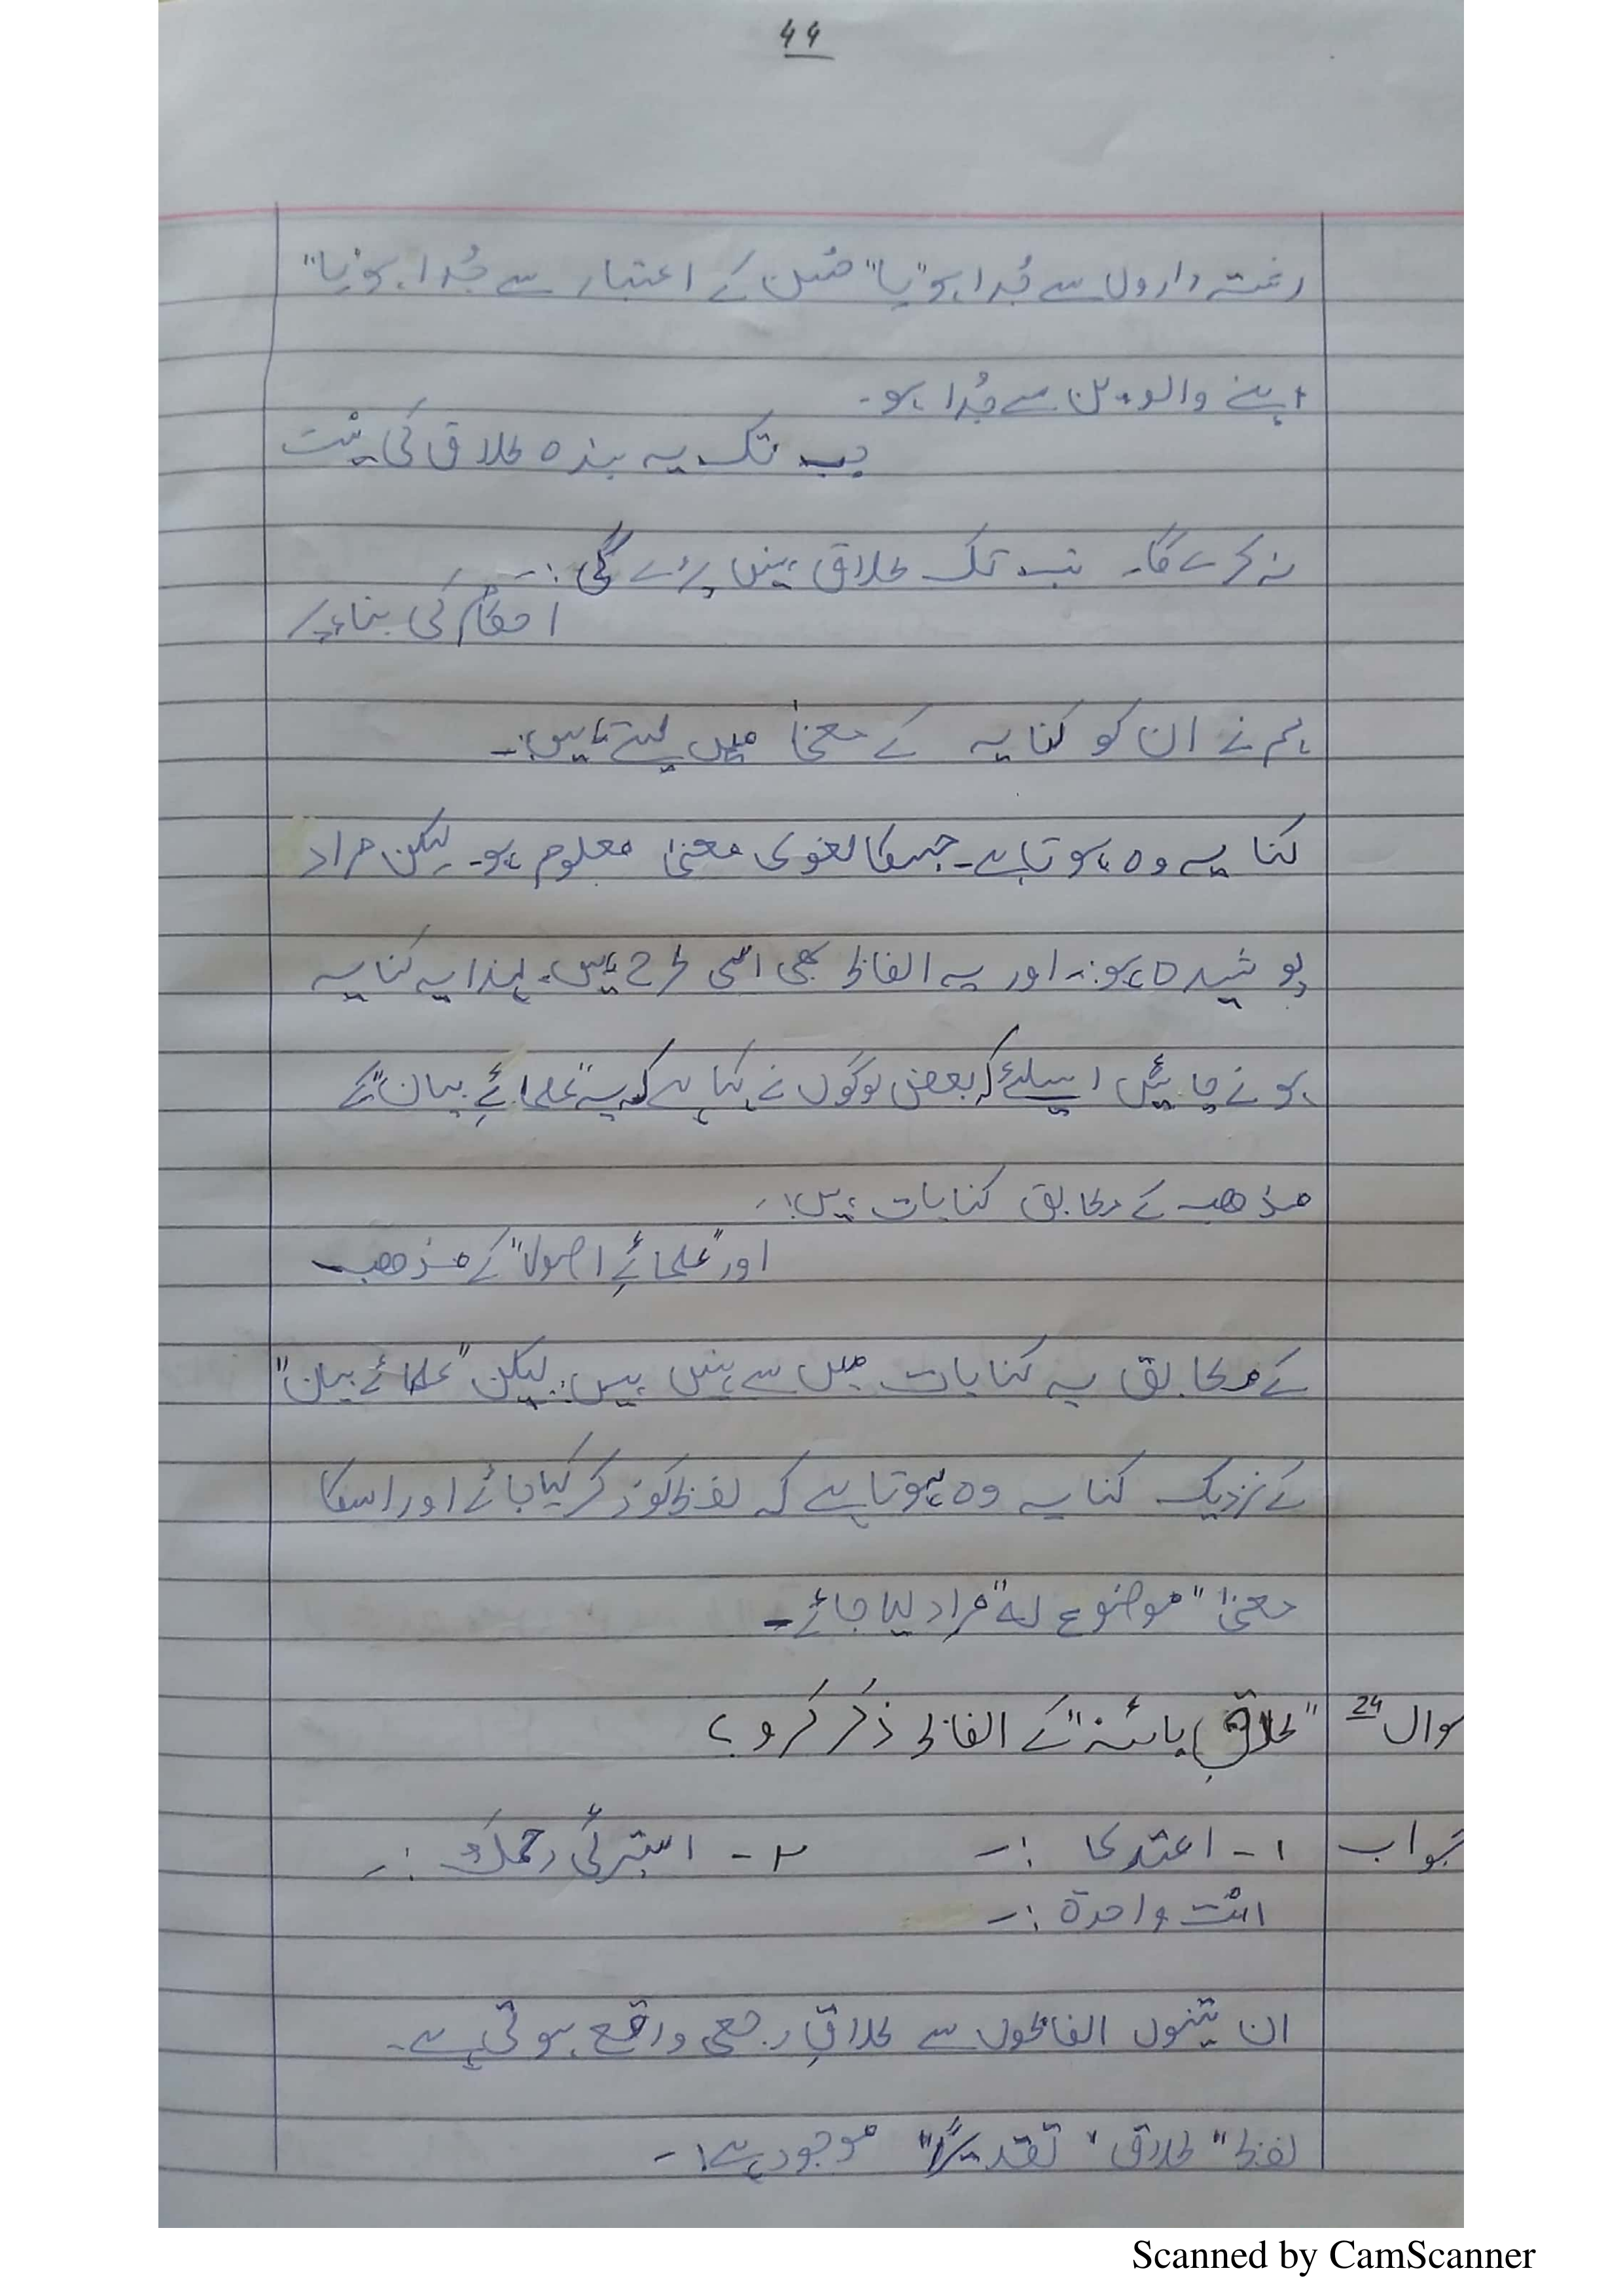 44
رشتہ داروں سے جُدا ہو "یا" حُسن کے اعتبار سے جُدا ہو "یا"
اپنے والدین سے جُدا ہو۔
جب تک یہ بندہ طلاق کی نیّت
نہ کرے گا۔ تب تک طلاق نہیں پڑے گی :۔
احکام کی بناء پر
ہم نے ان کو کنایہ کے معنیٰ میں لیتے ہیں :۔
کنایہ وہ ہوتا ہے۔ جسکا لغوی معنیٰ معلوم ہو۔ لیکن مراد
پوشیدہ ہو :۔ اور یہ الفاظ بھی اسی طرح ہیں۔ لہذا یہ کنایہ
ہونے چاہئیں اسیلئے کہ بعض لوگوں نے کہا ہے کہ یہ "علمائے بیان" کے
مذھب کے مطابق کنایات ہیں :۔
اور "علمائے اصول" کے مذھب
کے مطابق یہ کنایات میں سے نہیں ہیں : لیکن "علمائے بیان"
کے نزدیک کنایہ وہ ہوتا ہے کہ لفظ کو ذکر کیا جائے اور اسکا
معنیٰ "موضوع لہ" مراد لیا جائے۔
سوال 24 "طلاق بائنہ" کے الفاظ ذکر کرو ؟
جواب ۱۔ اعتدی :۔ ۲۔ استبرئی رحمک :۔
انت واحدۃ :۔
ان تینوں الفاظوں سے طلاقِ رجعی واقع ہوتی ہے۔
لفظ "طلاق" تقدیرًا" موجود ہے :۔
Scanned by CamScanner